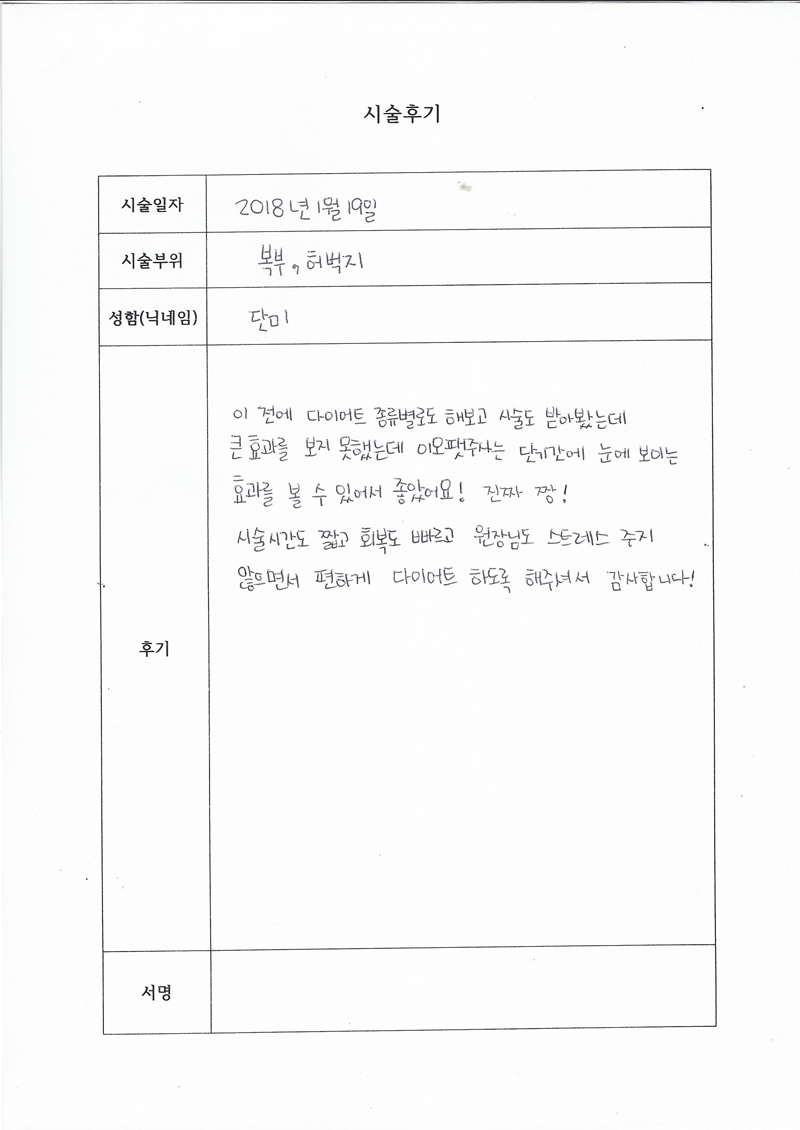 시술후기
시술일자 2018년 1월 19일
시술부위 복부, 허벅지
성함(닉네임) 단미
이 전에 다이어트 종류별로도 해보고 시술도 받아봤는데
큰 효과를 보지 못했는데 이오팻주사는 단기간에 눈에 보이는
효과를 볼 수 있어서 좋았어요! 진짜 짱!
시술시간도 짧고 회복도 빠르고 원장님도 스트레스 주지
않으면서 편하게 다이어트 하도록 해주셔서 감사합니다!
후기
서명